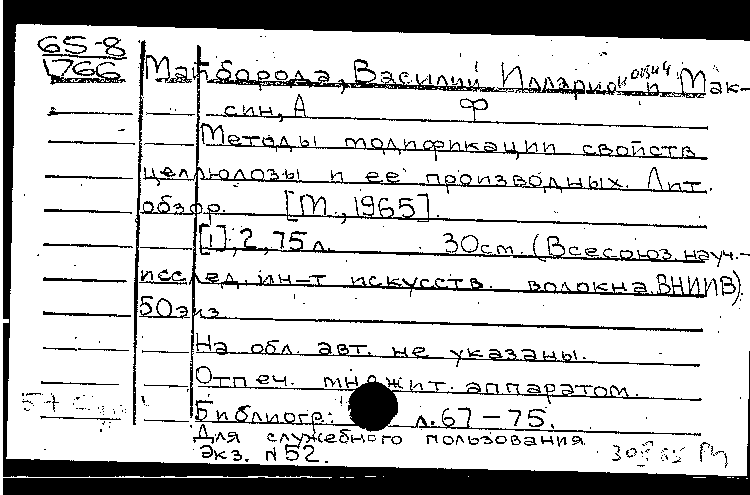 65-8
1766
Майборода, Василий Илларионович и Мак-
син, А ф
Методы модификации свойств
целлюлозы и ее производных. Лит.
обзор. [М., 1965].
[1], 2, 75 л. 30см. (Всесоюз. науч.-
исслед. ин-т искусств. волокна. ВНИИВ).
50экз
На обл. авт. не указаны.
Отпеч. множит. аппаратом.
Библиогр: л. 67-75.
Для служебного пользования
Экз. №52.